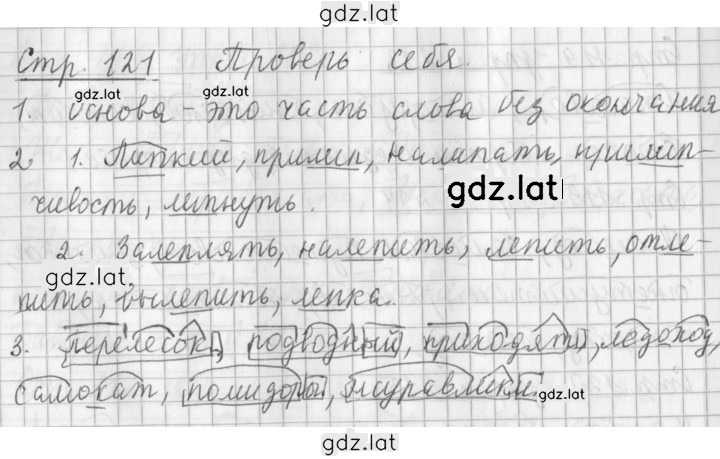 gdz.lat
Стр. 121 Проверь себя.
gdz.lat gdz.lat
1. Основа - это часть слова без окончания
2. 1. Липкий, прилип, налипать, прилип-
gdz.lat
чивость, липнуть.
2. Залеплять, налепить, лепить, отле-
gdz.lat
пить, вылепить, лепка.
3. перелесок, подводный, приходят, ледоход,
самокат, помидоры, муравьики.
gdz.lat
gdz.lat